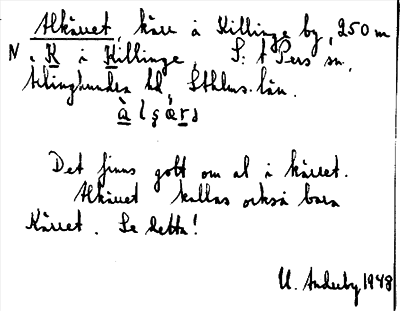 Alkärret, kärr i Killinge by, 250 m
N i K i Killinge, S:t Pers sn,
Seminghundra hd, Sthlms. län.
Det finns gott om al i kärret.
Alkärret kallas också bara
Kärret. Se detta!
U. Anderby 1948